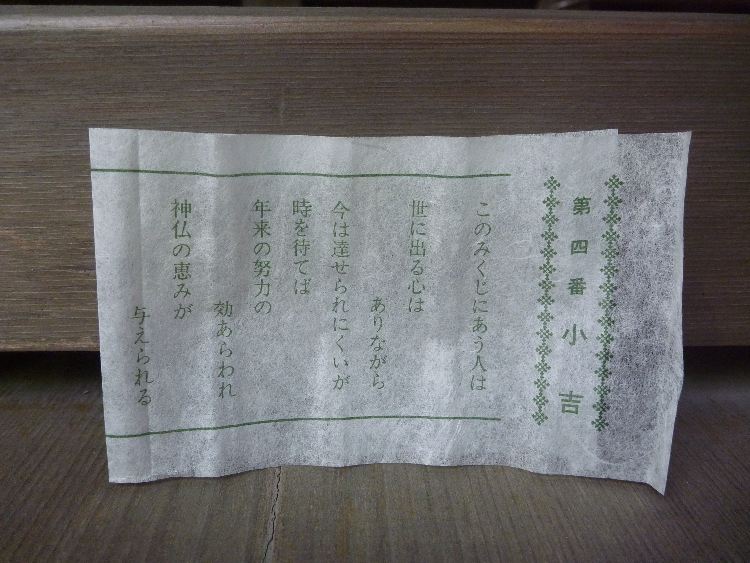 第四番 小吉
このみくじにあう人は
世に出る心は
ありながら
今は達せられにくいが
時を待てば
年来の努力の
効あらわれ
神仏の恵みが
与えられる